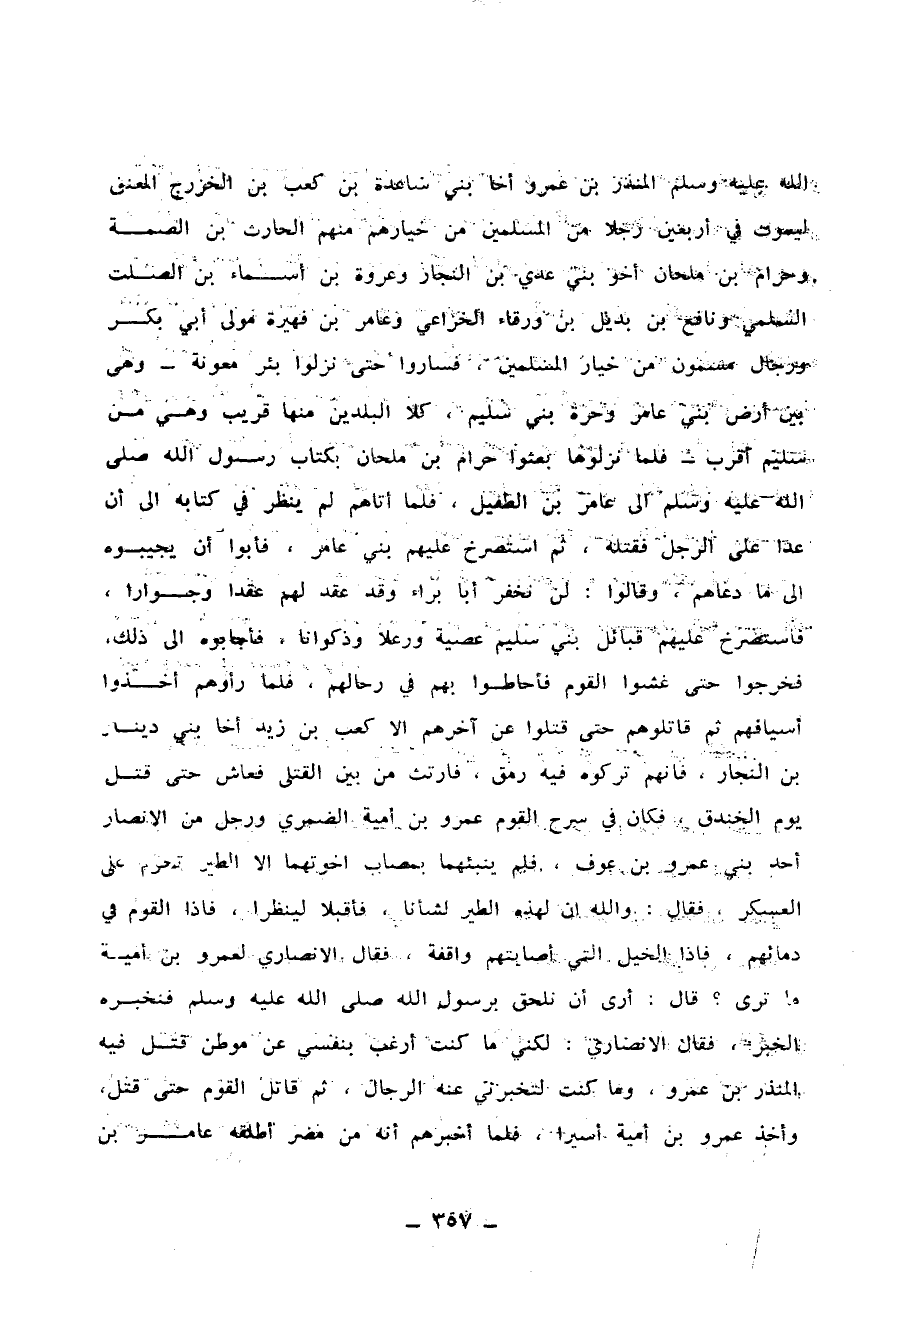 الله عليه وسلم المنذر بن عمرو أخا بني ساعدة بن كعب بن الخزرج المعنق
ليموت في أربعين رجلا من المسلمين من خيارهم منهم الحارث بن الصمـــة
وحرام بن ملحان أخو بني عدي بن النجار وعروة بن أســـماء بن الصـلت
السلمي ونافع بن بديل بن ورقاء الخزاعي وعامر بن فهيرة مولى أبي بكـــر
ورجال مسمون من خيار المسلمين ، فساروا حتى نزلوا بئر معونة ـ وهى
بين أرض بني عامر وحرة بني سليم ، كلا البلدين منها قريب وهـي مـن
سليم أقرب ـ فلما نزلوها بعثوا حرام بن ملحان بكتاب رســول الله صلى
الله عليه وسلم الى عامر بن الطفيل ، فلما أتاهم لم ينظر في كتابه الى أن
عدا على الرجل فقتله ، ثم استصرخ عليهم بني عامر ، فأبوا أن يجيبــوه
الى ما دعاهم ، وقالوا : لن نخفر أبا براء وقد عقد لهم عقدا وجــوارا ،
فاستصرخ عليهم قبائل بني سليم عصية ورعلا وذكوانا ، فأجابوه الى ذلك،
فخرجوا حتى غشوا القوم فأحاطـوا بهم في رحالهم ، فلما رأوهم أخـــذوا
أسيافهم ثم قاتلوهم حتى قتلوا عن آخرهم الا كعب بن زيد أخا بني دينـار
بن النجار ، فانهم تركوه فيه رمق ، فارتث من بين القتلى فعاش حتى قتـل
يوم الخندق ، فكان في سرح القوم عمرو بن أمية الضمري ورجل من الانصار
أحد بني عمرو بن عوف ، فلم ينبئهما بمصاب اخوتهما الا الطير تحوم على
العسكر ، فقال : والله ان لهذه الطير لشأنا ، فأقبلا لينظرا ، فاذا القوم في
دمائهم ، فاذا الخيل التي أصابتهم واقفة ، فقال الانصاري لعمرو بن أميـة
ما ترى ؟ قال : أرى أن نلحق برسول الله صلى الله عليه وسلم فنخبـره
الخبر ، فقال الانصاري : لكني ما كنت أرغب بنفسي عن موطن قتـل فيه
المنذر بن عمرو ، وما كنت لتخبرني عنه الرجال ، ثم قاتل القوم حتى قتل،
وأخذ عمرو بن أمية أسيرا ، فلما أخبرهم أنه من مضر أطلقه عامـــر بن
ـ ٣٥٧ ـ